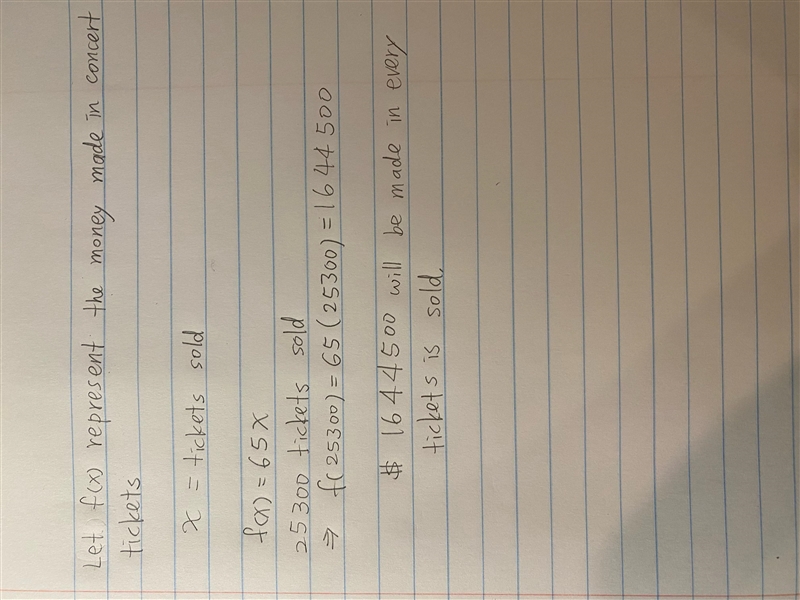 Let f(x) represent the money made in concert
tickets
x = tickets sold
f(x) = 65x
25300 tickets sold
⇒ f(25300) = 65(25300) = 1644500
$ 1644500 will be made in every
tickets is sold.